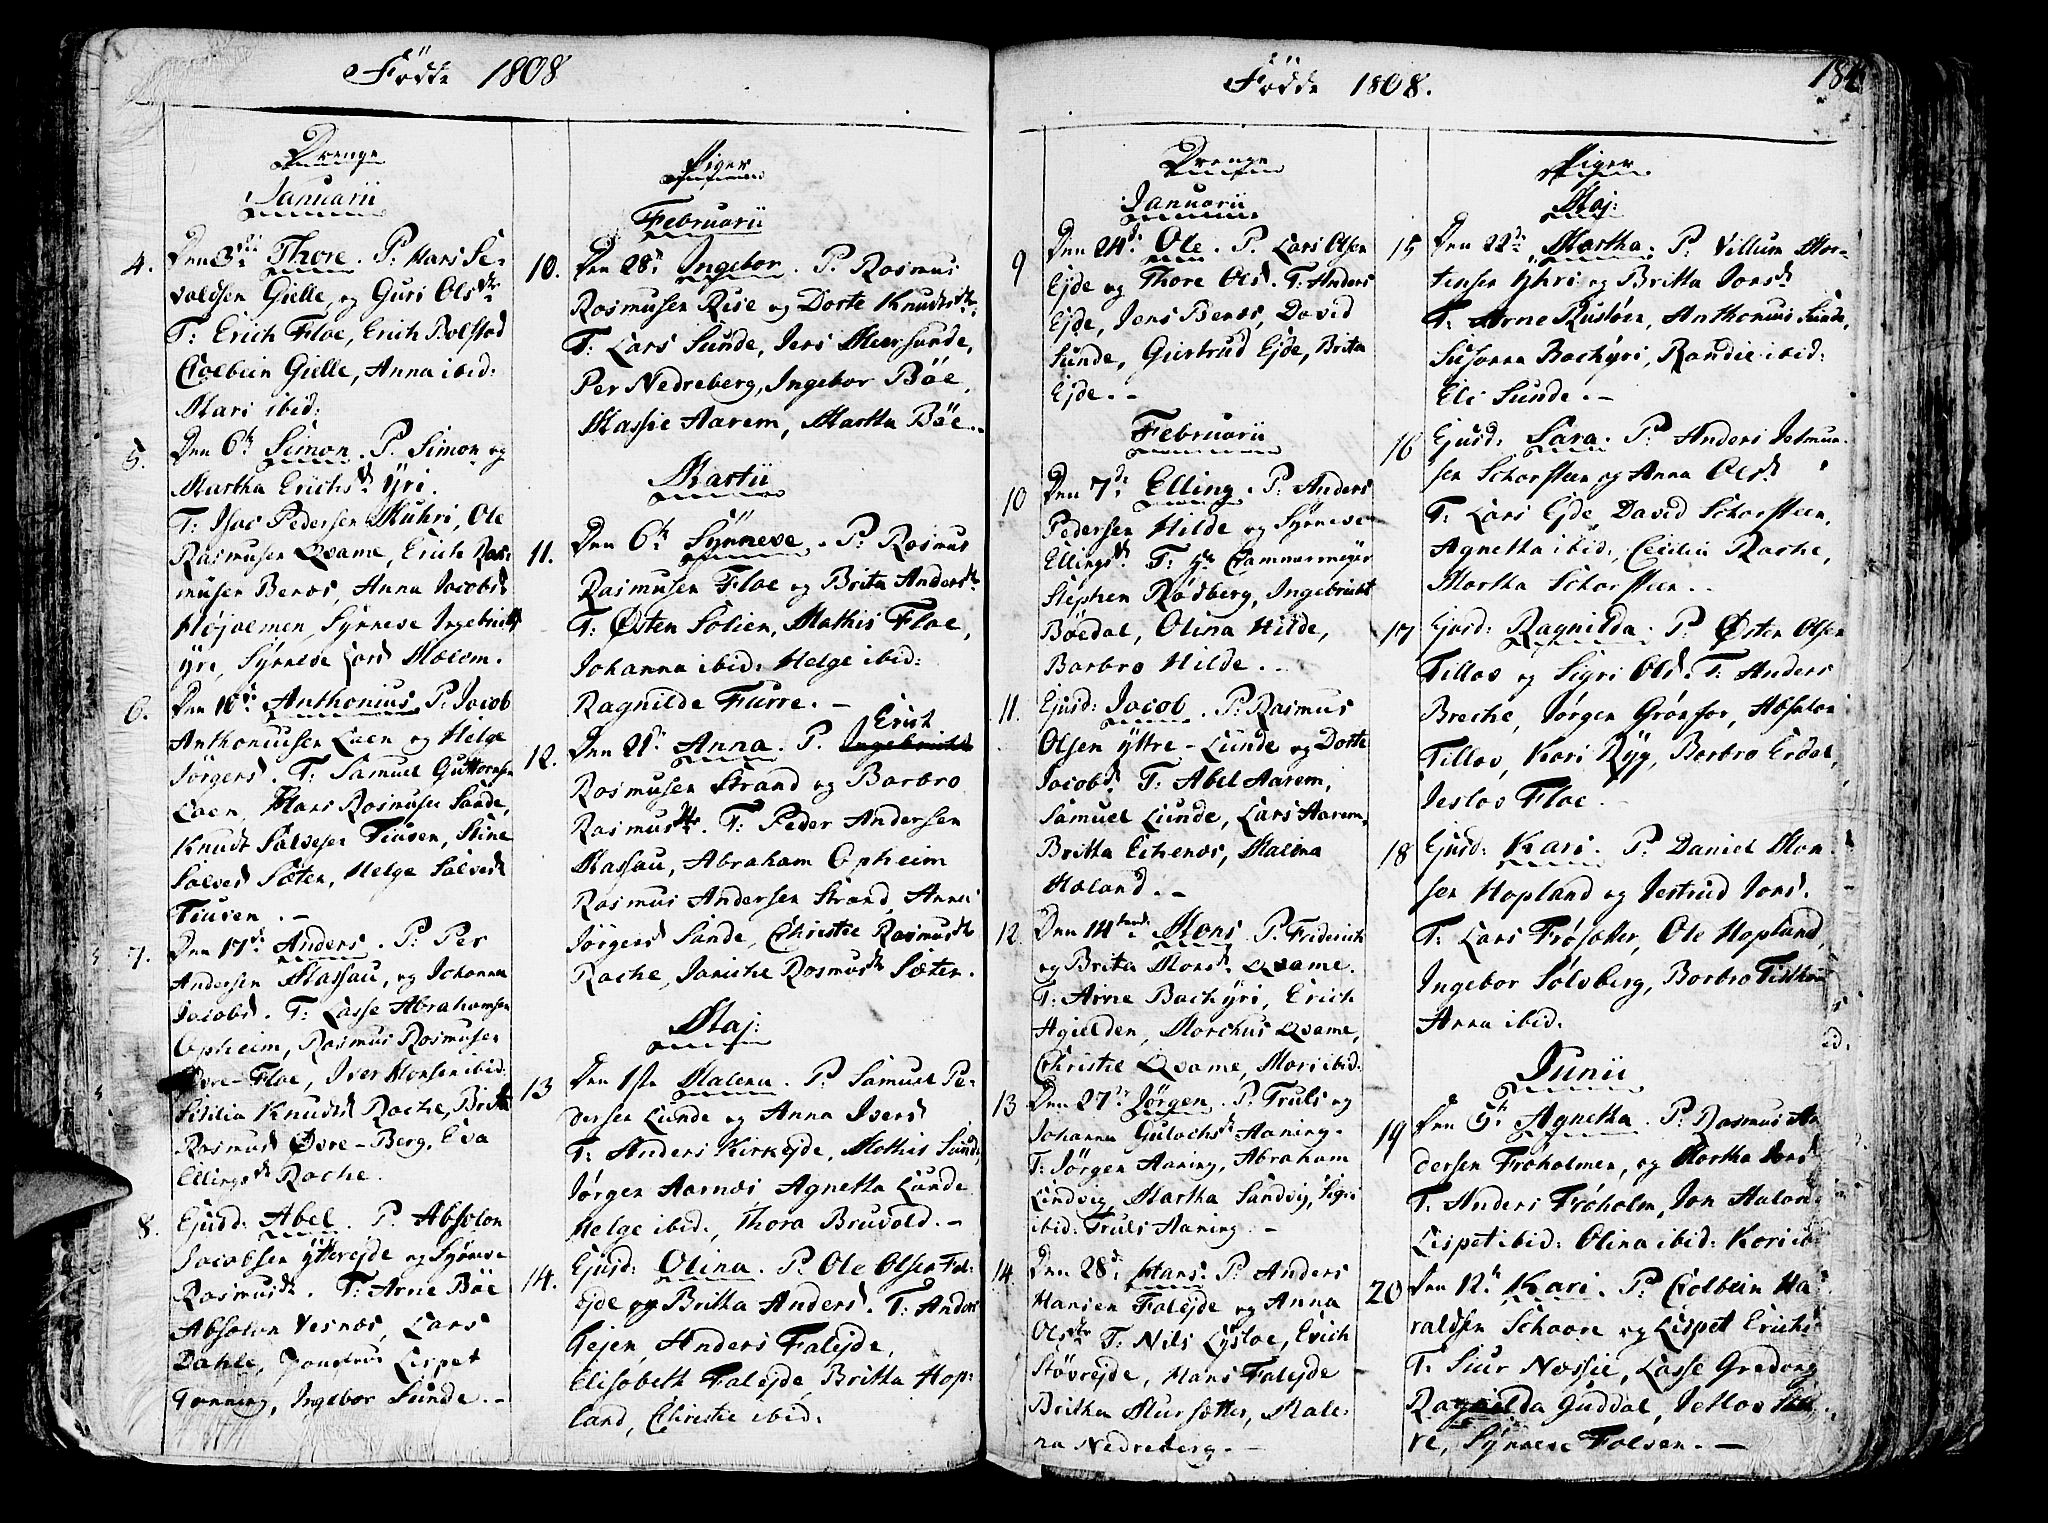 Födde 1808
Drenge
Januarii
4. Den 3di Thore. P. Hans Se-
valdsen Gielle, og Guri Olsdtr
T: Erich Floe, Erich Bolstad
Colbein Gielle, Anna ibid:
Mari ibid:
5. Den 6te Simon. P. Simon og
Martha Erichsd. Yri.
T: Isac Pedersen Muhri, Ole
Rasmusen Qvame, Erich Ras-
musen Benes, Anna Jacobsd
Höjoemen, Synneve Ingebrichtsd
Yri, Synneve Larsd Molem.
6. Den 10de Anthonius P. Jacob
Anthoniusen Loen og Helge
Jörgensd. T: Samuel Guttormsen
Loen, Hans Rasmusen Sande,
Knudt Salvesen Tiusen, Stine
Salvesd Sæten, Helge Salvesd
Tiusen. -
7. Den 17de Anders. P: Per
Andersen Massau, og Johanna
Jacobsd. T: Lasse Abrahamsen
Opheim, Rasmus Rasmusen
Øvre-Floe, Iver Monsen ibid:
Sisilia Knudsd Rache, Brita
Rasmusd Øvre-Berg, Eva
Ellingsd Rache.
8. Ejusd: Abel. P. Absolon
Jacobsen Ytreejde og Synneve
Rasmusd. T: Arne Böe
Absolon Vesnes, Lars
Dahle, Jomfrue Lispet
Tonning, Ingebor Sunde. -
Piger
Februarii
10. Den 28de Ingebor. P. Rasmus
Rasmusen Rese og Dorte Knudsdtr
T: Lars Sunde, Jens Meer Sunde,
Per Nedreberg, Ingebor Böe,
Massie Aarem, Martha Böe. -
Martii
11. Den 6te Synneve. P: Rasmus
Rasmusen Floe og Brita Andersd
T: Østen Solien, Mathis Floe,
Johanna ibid: Helge ibid:
Ragnilde Furre. -
Erich
12. Den 21de Anna. P. Ingebricht
Rasmusen Strand og Barbro
Rasmusdtr. T: Peder Andersen
Massau, Abraham Opheim
Rasmus Andersen Strand, Anna
Jörgensd Sande, Christie Rasmusd
Rache, Joniche Rasmusd Sæten.
Maj:
13 Den 1ste Malena. P: Samuel Pe-
dersen Lunde og Anna Iversd
T: Anders Kirkejde, Mathis Sunde,
Jörgen Aarnes, Agnetha Lunde
Helge ibid:, Thora Bruvold. -
14. Ejusd: Olina. P. Ole Olsen Fal-
ejde og Britha Andersd. T: Anders
Tejen, Anders Falejde,
Elisabeth Falejde, Britha Hop-
land, Christie ibid:
Födde 1808.
Drenge
Januarii
9 Den 24de Ole. P. Lars Olsen
Ejde og Thore Olsd. T: Anders
Ejde, Jens Benes, David
Sunde, Giertrud Ejde, Brita
Ejde. -
Februarii
10 Den 7de Elling. P: Anders
Pedersen Hilde og Synneve
Ellingsd. T: Hr Cammermeyer
Stephen Rödberg, Ingebricht
Böedal, Olina Hilde,
Barbro Hilde. -
11. Ejusd: Jacob. P: Rasmus
Olsen Yttre-Lunde og Dorte
Jacobsd. T: Abel Aarem,
Samuel Lunde, Lars Aarem,
Britha Echenes, Malena
Moland. -
12. Den 14tende Mons. P: Friderich
og Brita Monsd. Qvame.
T: Arne Bachyri, Erich
Agielden, Morchus Qvame,
Christie Qvame, Mari ibid.
13 Den 27de Jörgen. P. Truls og
Johanna Gulachsd Aaning.
T: Jörgen Aaning, Abraham
Lindvig, Martha Sandvig, Sigri
ibid: Truls Aaning. -
14. Den 28de Hans. P: Anders
Hansen Falejde og Anna
Olsdtr T: Nils Lysloe, Erich
Stövrejde, Hans Falejde
Britha Mursætter, Male-
na Nedreberg. -
Piger
Maj:
15 Den 22de Martha. P: Villum Mor-
tensen Yhri og Britta Jonsd
T: Arne Rustöen, Anthonius Sunde,
Susanna Bachyri, Randie ibid:
Eli Sunde. -
16 Ejusd: Sara. P: Anders Jetmun-
sen Schorsteen og Anna Olsd
T: Lars Ejde David Schorsteen,
Agnetha ibid: Cecilia Rache,
Martha Schorsteen. -
17 Ejusd: Ragnilda. P: Østen Olsen
Tillos og Sigri Olsd. T: Anders
Breche, Jörgen Grönfor, Absolon
Tillos, Kari Ryg, Barbro Erdal,
Jeslos Floe. -
18 Ejusd: Kari. P. Daniel Mon-
sen Hopland og Jertrud Jonsd.
T: Lars Frösætter, Ole Hopland,
Ingebor Solvberg, Barbro
Anna ibid.
Junii
19 Den 5te Agnetha. P: Rasmus An-
dersen Fröholmen, og Martha Jonsd
T: Anders Fröholm, Jon
Lispet ibid: Olina ibid: Kari ib
20 Den 12te Kari. P. Colbein Ha-
raldsen Schaare og Lispet Erichs
T: Siur Nessie, Lasse Gredong
Ragnilda Guddal, Jetlos
re, Synneve Folsen. -